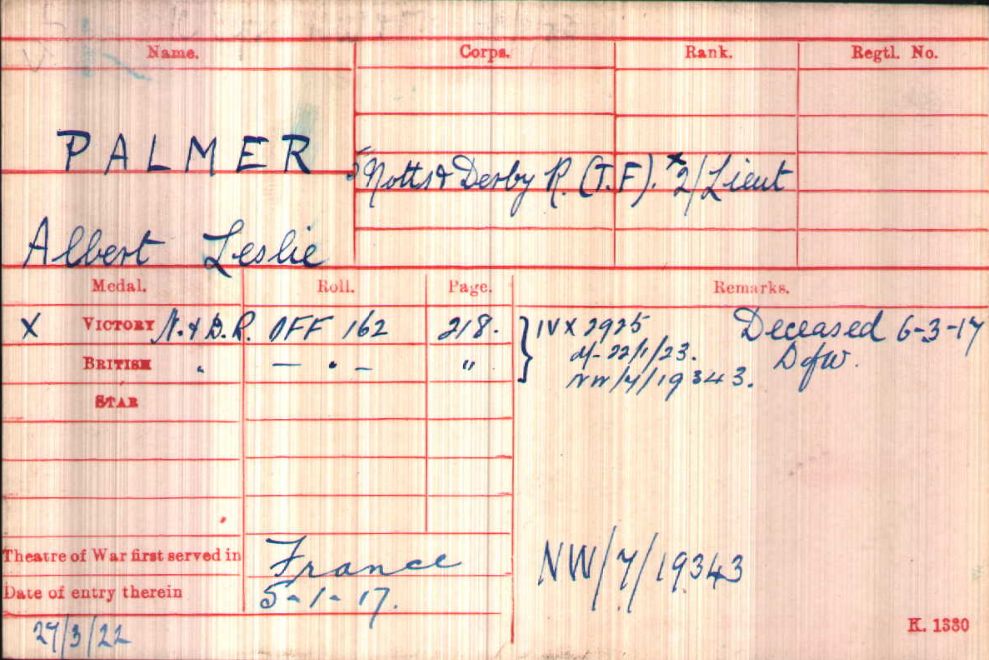 Name. Corps. Rank. Regtl. No.
PALMER
5 Notts & Derby R. (T.F). x 2/Lieut
Albert Leslie
Medal. Roll. Page. Remarks.
X VICTORY N. & D.R. OFF 162 218. } IVX 2925 Deceased 6-3-17
BRITISH " — " — " d/- 22/1/23. DofW.
NW/7/19343.
STAR
Theatre of War first served in France NW/7/19343
Date of entry therein 5-1-17.
27/3/22
K. 1380